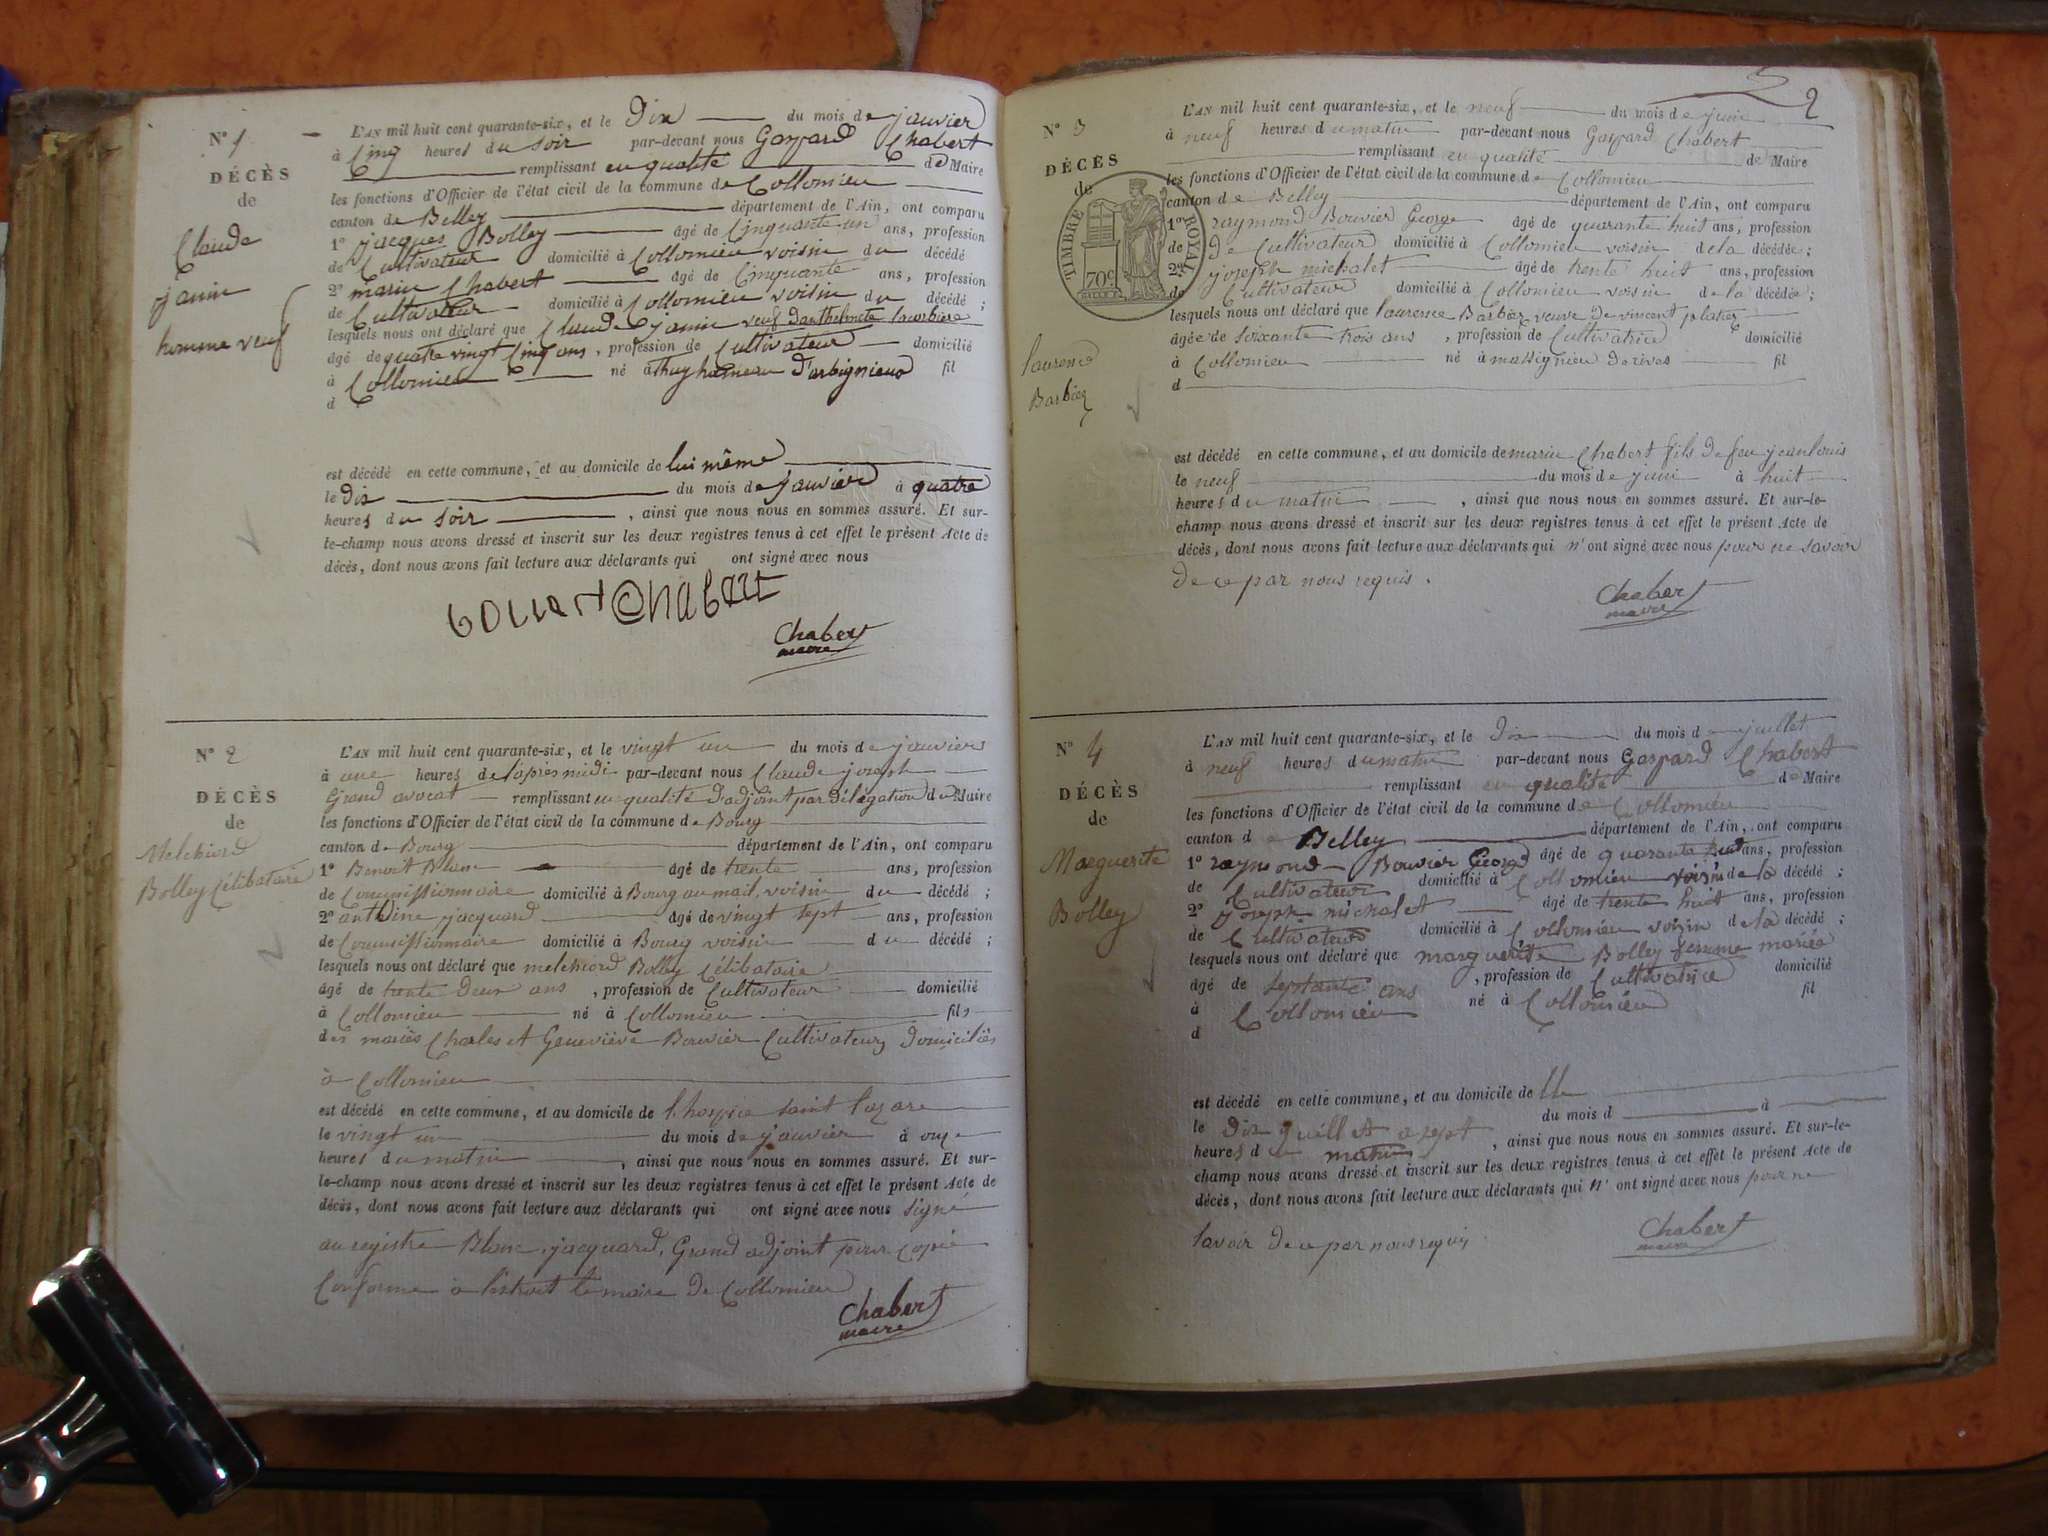 N° 1
DÉCÈS
de
Claude
janin
homme veuf
L'AN mil huit cent quarante-six, et le Dix du mois de janvier
à Cinq heures du soir par-devant nous Gaspard Chabert
remplissant en qualité de Maire
les fonctions d'Officier de l'état civil de la commune de Collomieu
canton de Belley département de l'Ain, ont comparu
1° jacques Bolley âgé de Cinquante un ans, profession
de Cultivateur domicilié à Collomieu voisin du décédé
2° marin Chabert âgé de Cinquante ans, profession
de Cultivateur domicilié à Collomieu voisin du décédé ;
lesquels nous ont déclaré que Claude janin veuf d'anthelmette
âgé de quatre vingt Cinq ans, profession de Cultivateur domicilié
à Collomieu né à thuy hameau d'arbignieux fil
d
est décédé en cette commune, et au domicile de lui même
le Dix du mois de janvier à quatre
heures du soir , ainsi que nous nous en sommes assuré. Et sur-
le-champ nous avons dressé et inscrit sur les deux registres tenus à cet effet le présent Acte de
décès, dont nous avons fait lecture aux déclarants qui ont signé avec nous
Chabert
Chabert
maire
N° 2
DÉCÈS
de
Melchiord
Bolley Célibataire
L'AN mil huit cent quarante-six, et le vingt un du mois de janvier
à une heures de l'après midi par-devant nous Claude joseph
Grand avocat remplissant en qualité d'adjoint par délégation du Maire
les fonctions d'Officier de l'état civil de la commune de Bourg
canton de Bourg département de l'Ain, ont comparu
1° Benoit Blanc âgé de trente ans, profession
de Commissionnaire domicilié à Bourg au mail, voisin du décédé ;
2° anthoine jacquard âgé de vingt sept ans, profession
de Commissionnaire domicilié à Bourg voisin du décédé ;
lesquels nous ont déclaré que melchiord Bolley Célibataire
âgé de trente Deux ans , profession de Cultivateur domicilié
à Collomieu né à Collomieu fils
des mariés Charles et Geneviève Bouvier Cultivateurs Domiciliés
à Collomieu
est décédé en cette commune, et au domicile de l'hospice saint lazare
le vingt un du mois de janvier à onze
heures du matin , ainsi que nous nous en sommes assuré. Et sur-
le-champ nous avons dressé et inscrit sur les deux registres tenus à cet effet le présent Acte de
décès, dont nous avons fait lecture aux déclarants qui ont signé avec nous signé
au registre Blanc, jacquard, Grand adjoint pour Copie
Conforme à l'extrait le maire de Collomieu
Chabert
maire
2
N° 3
DÉCÈS
de
TIMBRE ROYAL
70c
laurence
Barbier
L'AN mil huit cent quarante-six, et le neuf du mois de juin
à neuf heures du matin par-devant nous Gaspard Chabert
remplissant en qualité de Maire
les fonctions d'Officier de l'état civil de la commune de Collomieu
canton de Belley département de l'Ain, ont comparu
1° raymond Bouvier George âgé de quarante huit ans, profession
de De Cultivateur domicilié à Collomieu voisin de la décédée ;
2° joseph michalet âgé de trente huit ans, profession
de Cultivateur domicilié à Collomieu voisin de la décédée ;
lesquels nous ont déclaré que laurence Barbier veuve de vincent
âgée de soixante trois ans , profession de Cultivatrice domicilié
à Collomieu né à massignieu de rives fil
d
est décédé en cette commune, et au domicile de marin Chabert fils de feu jean louis
le neuf du mois de juin à huit
heures du matin , ainsi que nous nous en sommes assuré. Et sur-le-
champ nous avons dressé et inscrit sur les deux registres tenus à cet effet le présent Acte de
décès, dont nous avons fait lecture aux déclarants qui n'ont signé avec nous pour ne savoir
de ce par nous requis.
Chabert
maire
N° 4
DÉCÈS
de
Marguerite
Bolley
L'AN mil huit cent quarante-six, et le Dix du mois de juillet
à neuf heures du matin par-devant nous Gaspard Chabert
remplissant en qualité de Maire
les fonctions d'Officier de l'état civil de la commune de Collomieu
canton de Belley département de l'Ain, ont comparu
1° raymond Bouvier George âgé de quarante huit ans, profession
de Cultivateur domicilié à Collomieu voisin de la décédé ;
2° joseph michalet âgé de trente huit ans, profession
de Cultivateur domicilié à Collomieu voisin de la décédé ;
lesquels nous ont déclaré que marguerite Bolley femme mariée
âgé de septante ans , profession de Cultivatrice domicilié
à Collomieu né à Collomieu fil
d
est décédé en cette commune, et au domicile de
le Dix juillet à sept du mois d à
heures du matin , ainsi que nous nous en sommes assuré. Et sur-le-
champ nous avons dressé et inscrit sur les deux registres tenus à cet effet le présent Acte de
décès, dont nous avons fait lecture aux déclarants qui n'ont signé avec nous pour ne
savoir de ce par nous requis
Chabert
maire